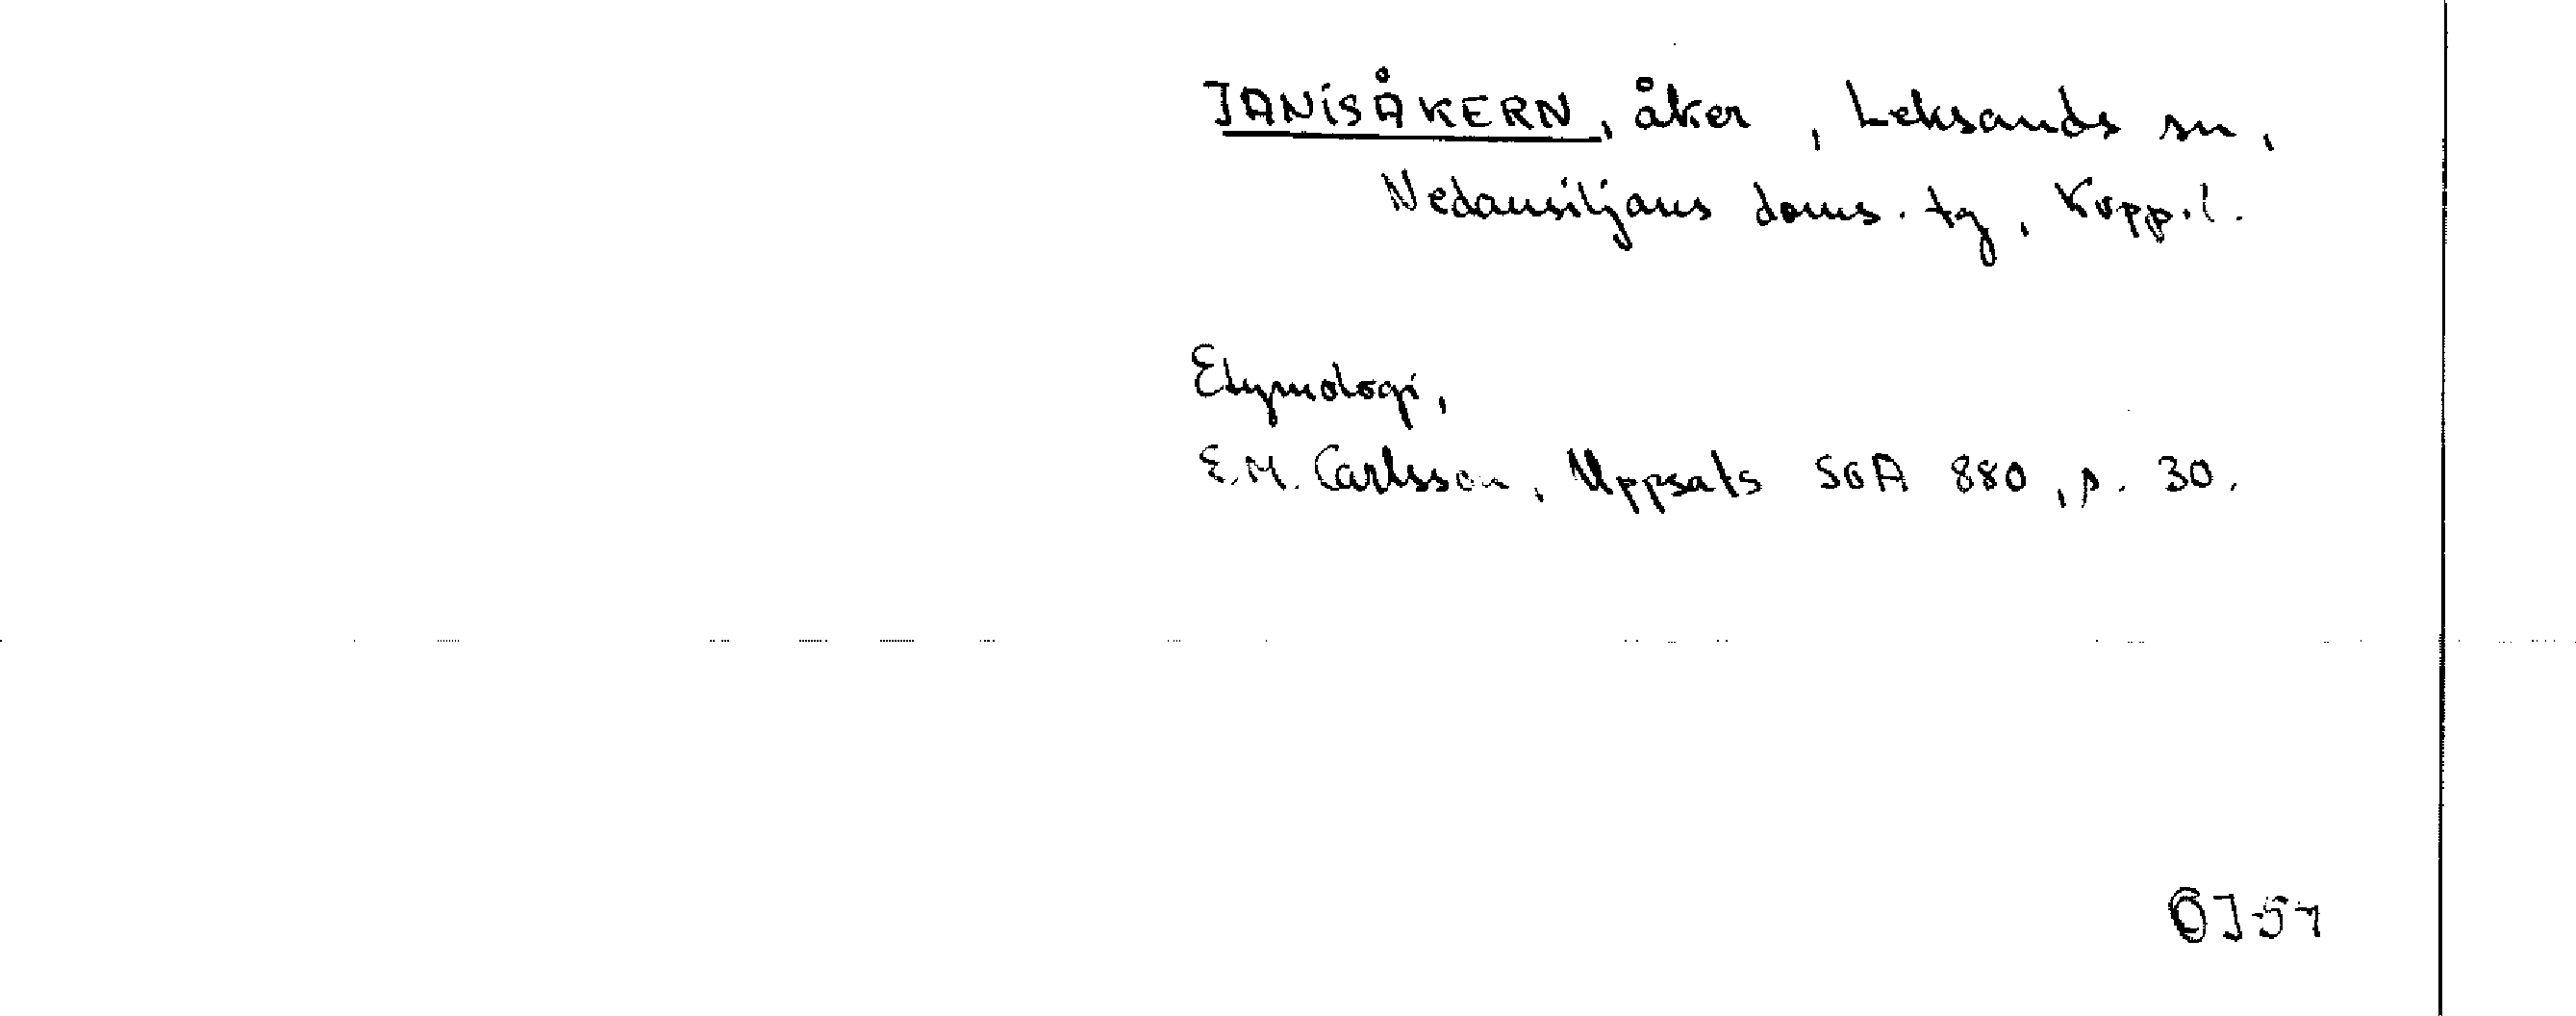 JANISÅKERN, åker, Leksands sn,
Nedansiljans doms. tg, Kopp. l.
Etymologi,
E.M. Carlsson, Uppsats SOA 880, s. 30.